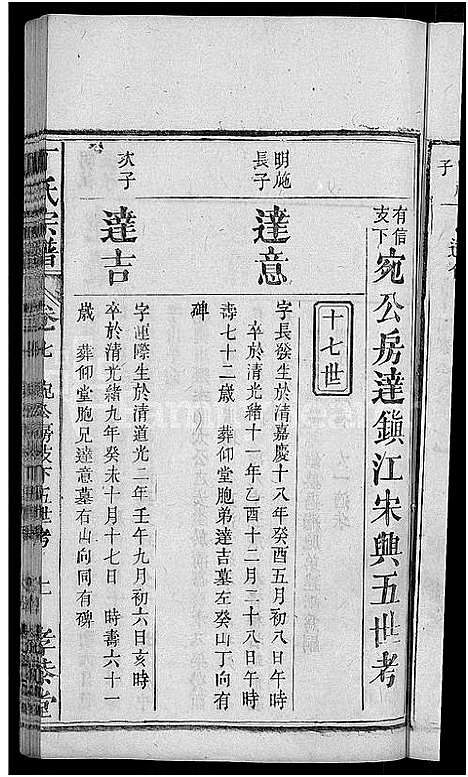 有信支下
宛公房達鎮江宋興五世考
十七世
明施長子
達意
字長發生於清嘉慶十八年癸酉五月初八日午時
卒於清光緒十一年乙酉十二月三十八日午時
壽七十二歲 葬仰堂胞弟達吉墓左癸山丁向有
碑
次子
達吉
字運際生於清道光二年壬午九月初六日亥時
卒於清光緒九年癸未十月十七日 時壽六十一
歲 葬仰堂胞兄達意墓右山向同有碑
丁氏宗譜 卷七 宛公房支下五世考 上